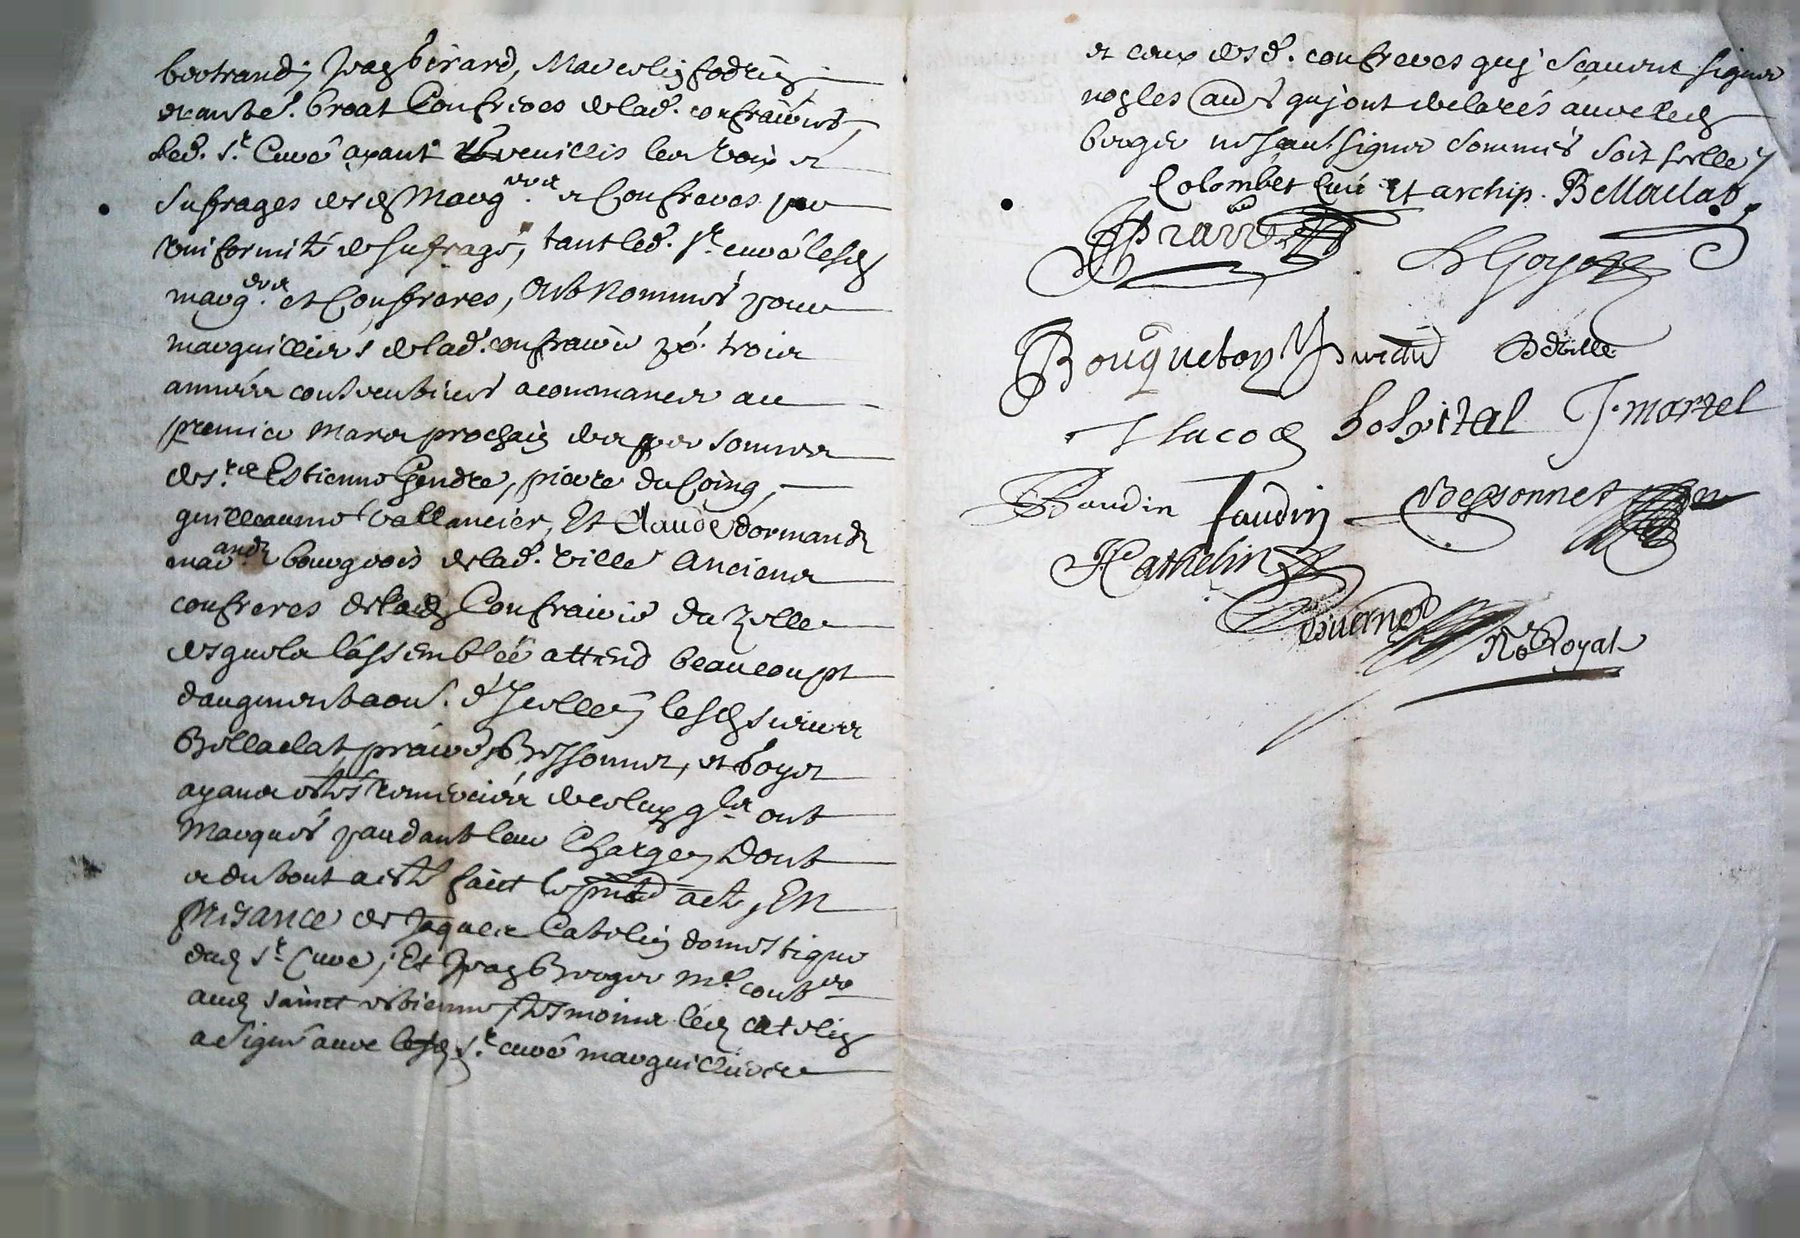 bertrand, Jean berard, Marcelin
et Confreres de lad. confrairie
led. Sr. Curé ayant recueillis les voix et
sufrages desd marg.ers et Confreres par
uniformité de sufrage, tant led. Sr. curé lesd
marg.ers et Confreres, ont nommés pour
marguilliers de lad. confrairie po.r trois
années consecutives a commancer au
premier mars prochain des personnes
de s.rs Estienne Gendre, pierre du Coing,
guilleaume Vallancier, Et Claude dormand
march.ands bourgeois de lad. ville Anciens
confreres de lad Confrairie du Zelle
desquels l'assemblée attend beaucoupt
daugmentaon. d'Icelle, lesd sieurs
Bellaclat, praire, Bessonnet, et Goyet
ayant estés remerciés de celuy qls ont
marqués pandant leur Charge, Dont
et du tout a esté faict le pnt acte, En
presance de Jaques Catelin domestique
dud Sr. Curé, Et Jean Berger
aud sainct estienne tesmoins led catelin
a signé avec led Sr. curé marguilliers
et ceux desd. confreres quj sçavent signer
non les autres quj ont declarés avec led
berger ne sçavoir signer sommés soit scellé
Colombet curé Et archip. Bellaclat
Praire
Goyet
Bouqueton Berard Deville
hospital J. martel
Baudin Jaudin Bessonnet
J Cathelin
No.re Royal